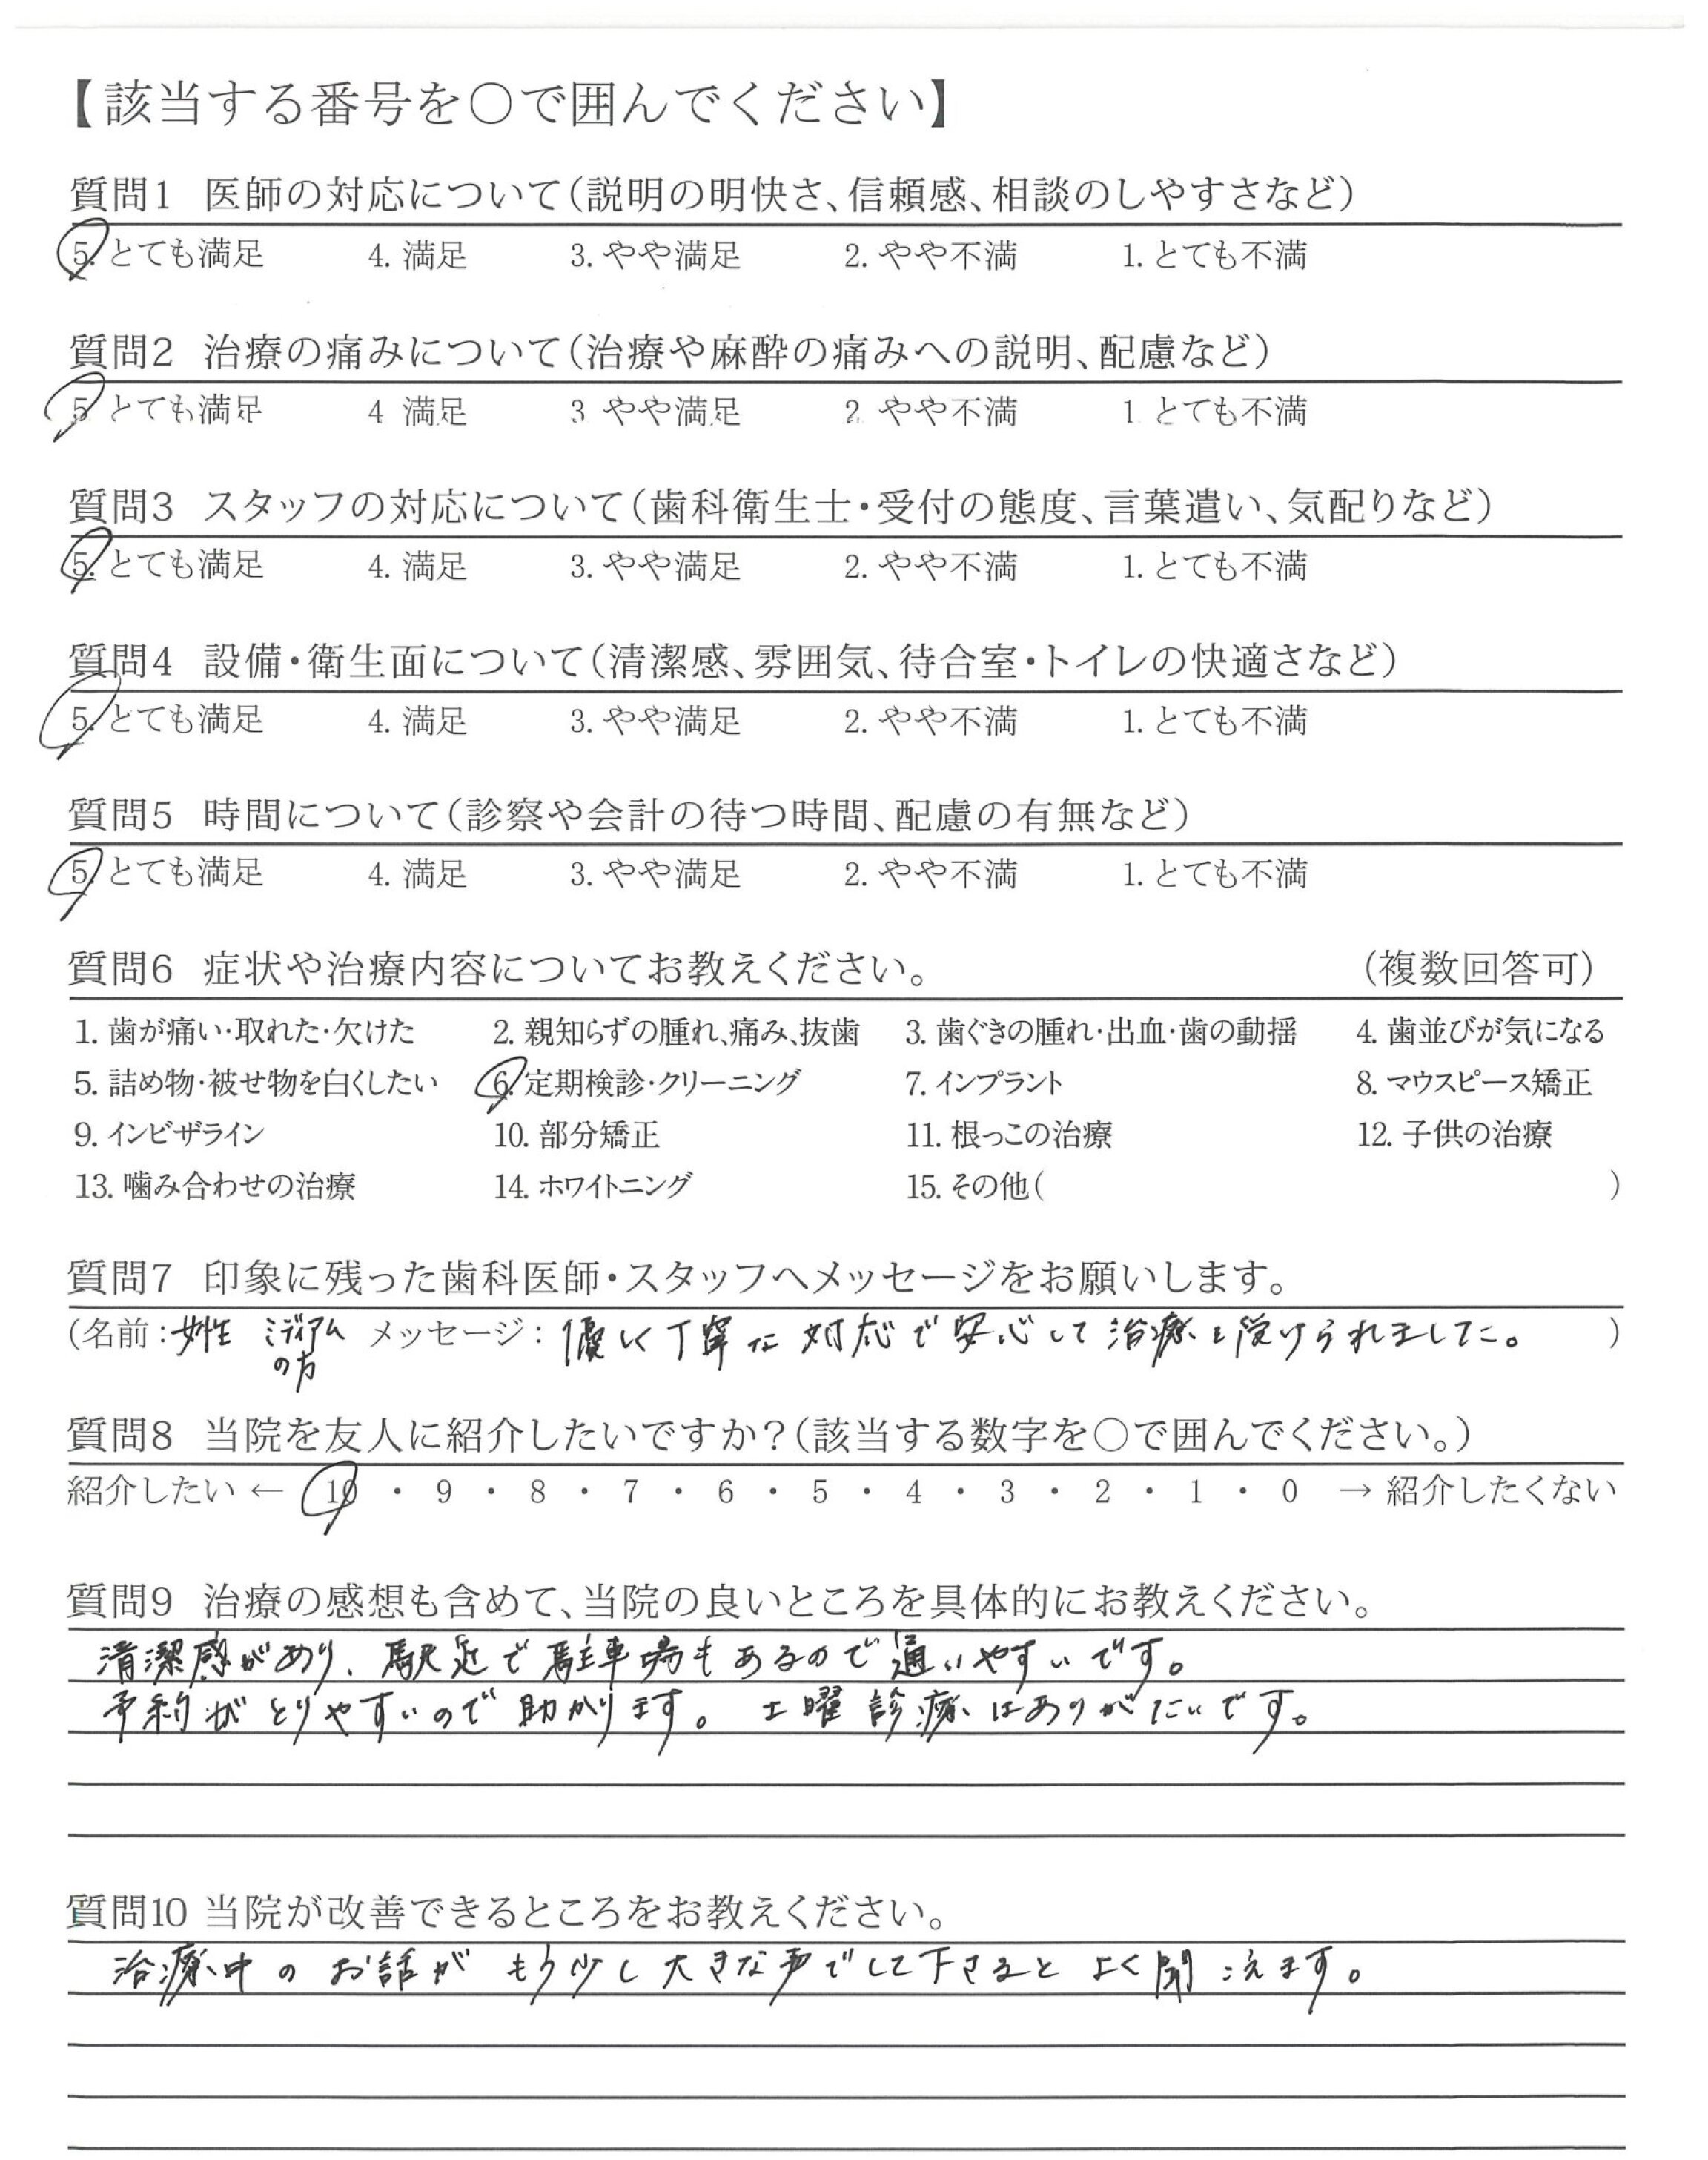 【該当する番号を〇で囲んでください】
質問1 医師の対応について(説明の明快さ、信頼感、相談のしやすさなど)
5. とても満足 4. 満足 3. やや満足 2. やや不満 1. とても不満
質問2 治療の痛みについて(治療や麻酔の痛みへの説明、配慮など)
5 とても満足 4 満足 3 やや満足 2 やや不満 1 とても不満
質問3 スタッフの対応について(歯科衛生士・受付の態度、言葉遣い、気配りなど)
5. とても満足 4. 満足 3. やや満足 2. やや不満 1. とても不満
質問4 設備・衛生面について(清潔感、雰囲気、待合室・トイレの快適さなど)
5. とても満足 4. 満足 3. やや満足 2. やや不満 1. とても不満
質問5 時間について(診察や会計の待つ時間、配慮の有無など)
5. とても満足 4. 満足 3. やや満足 2. やや不満 1. とても不満
質問6 症状や治療内容についてお教えください。 (複数回答可)
1. 歯が痛い・取れた・欠けた 2. 親知らずの腫れ、痛み、抜歯 3. 歯ぐきの腫れ・出血・歯の動揺 4. 歯並びが気になる
5. 詰め物・被せ物を白くしたい 6. 定期検診・クリーニング 7. インプラント 8. マウスピース矯正
9. インビザライン 10. 部分矯正 11. 根っこの治療 12. 子供の治療
13. 噛み合わせの治療 14. ホワイトニング 15. その他( )
質問7 印象に残った歯科医師・スタッフへメッセージをお願いします。
(名前：女性 ミディアム メッセージ：優しく丁寧な対応で安心して治療を受けられました。 )
の方
質問8 当院を友人に紹介したいですか?(該当する数字を〇で囲んでください。)
紹介したい ← 10 ・ 9 ・ 8 ・ 7 ・ 6 ・ 5 ・ 4 ・ 3 ・ 2 ・ 1 ・ 0 → 紹介したくない
質問9 治療の感想も含めて、当院の良いところを具体的にお教えください。
清潔感があり、駅近で駐車場もあるので通いやすいです。
予約がとりやすいので助かります。 土曜診療はありがたいです。
質問10 当院が改善できるところをお教えください。
治療中のお話がもう少し大きな声でして下さるとよく聞こえます。